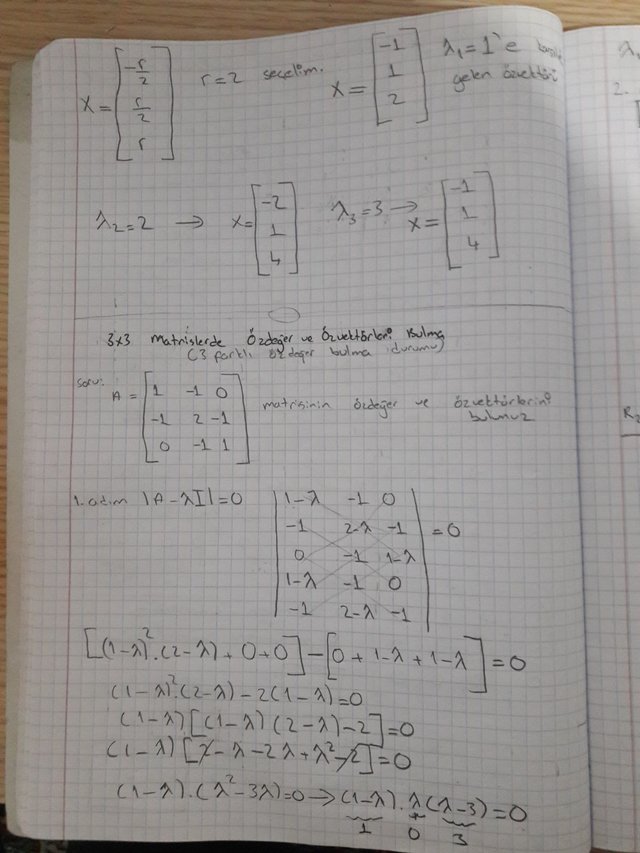 X = [-r/2 r/2 r] r=2 seçelim. X = [-1 1 2] λ₁=1'e
gelen özvektör
λ₂=2 → X= [-2 1 4] λ₃=3 → X= [-1 1 4]
3x3 Matrislerde Özdeğer ve Özvektörleri Bulma
(3 farklı özdeğer bulma durumu)
soru: A = [1 -1 0
-1 2 -1
0 -1 1] matrisinin özdeğer ve özvektörlerini
bulunuz
1. adım |A-λI|=0 |1-λ -1 0
-1 2-λ -1
0 -1 1-λ
1-λ -1 0
-1 2-λ -1| =0
[(1-λ)².(2-λ)+0+0]-[0+1-λ+1-λ]=0
(1-λ)².(2-λ)-2(1-λ)=0
(1-λ)[(1-λ)(2-λ)-2]=0
(1-λ)[2-λ-2λ+λ²-2]=0
(1-λ).(λ²-3λ)=0 → (1-λ).λ(λ-3)=0
1 0 3
λ
2.
R₂